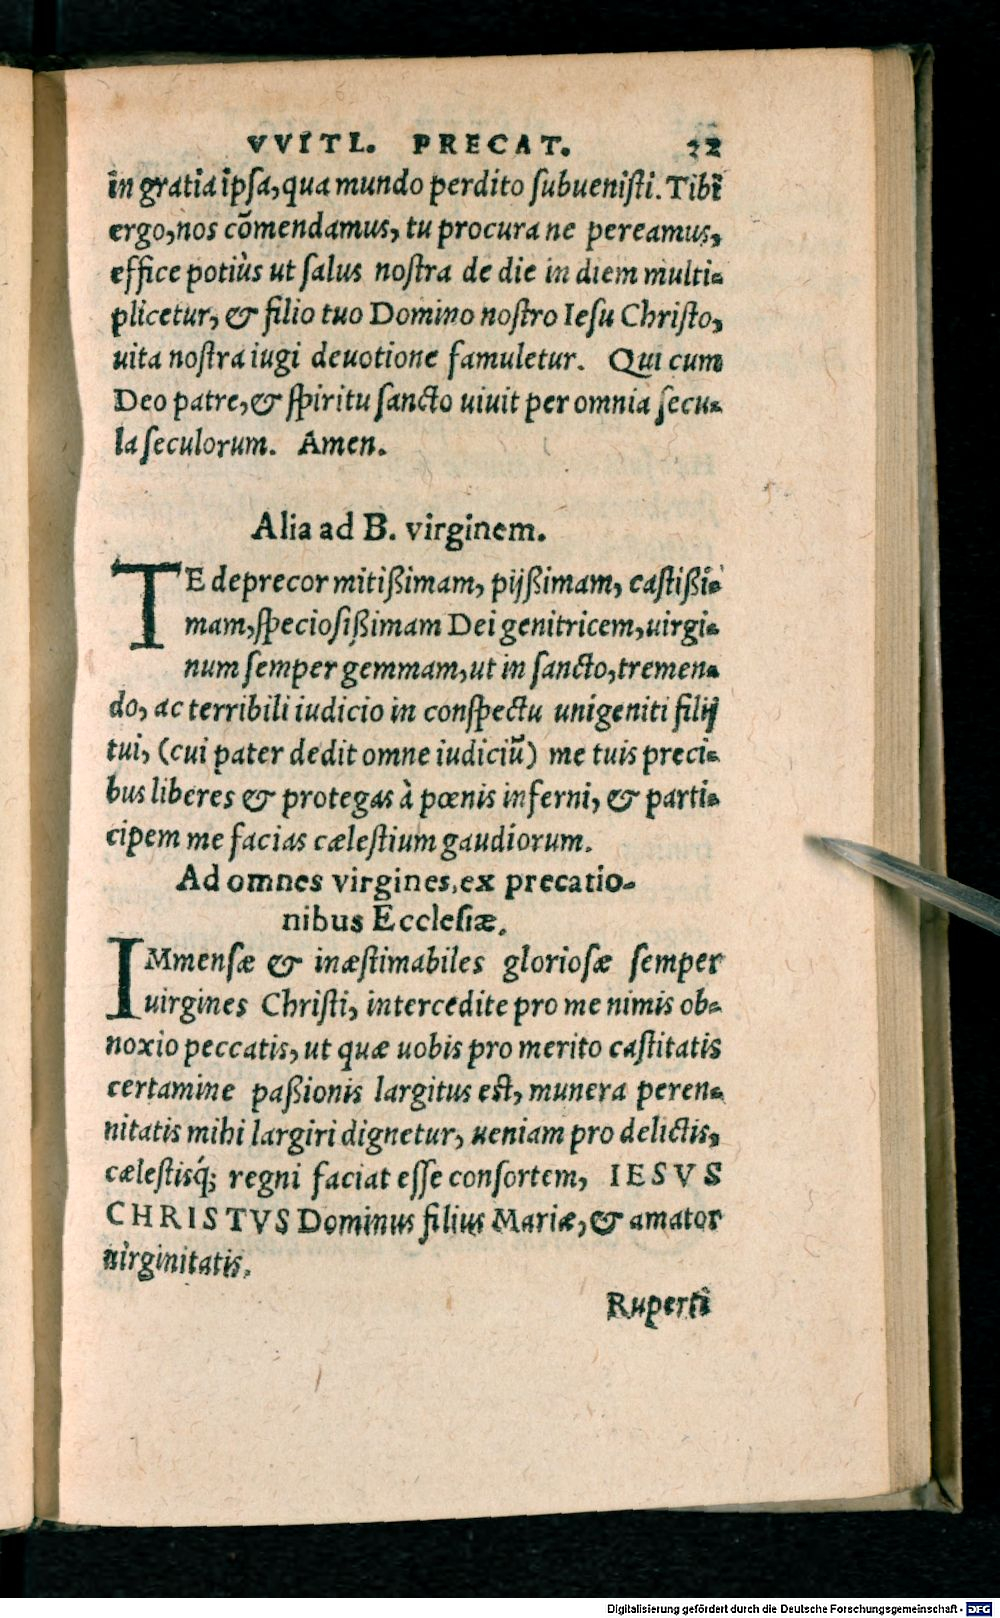 VVITL. PRECAT. 22
in gratia ipsa, qua mundo perdito subuenisti. Tibi
ergo, nos cōmendamus, tu procura ne pereamus,
effice potiùs ut salus nostra de die in diem multi-
plicetur, & filio tuo Domino nostro Iesu Christo,
uita nostra iugi deuotione famuletur. Qui cum
Deo patre, & spiritu sancto uiuit per omnia secu-
la seculorum. Amen.
Alia ad B. virginem.
TE deprecor mitißimam, pijßimam, castißi-
mam, speciosißimam Dei genitricem, uirgi-
num semper gemmam, ut in sancto, tremen-
do, ac terribili iudicio in conspectu unigeniti filij
tui, (cui pater dedit omne iudiciū) me tuis preci-
bus liberes & protegas à pœnis inferni, & parti-
cipem me facias cælestium gaudiorum.
Ad omnes virgines, ex precatio-
nibus Ecclesiæ.
IMmensæ & inæstimabiles gloriosæ semper
uirgines Christi, intercedite pro me nimis ob-
noxio peccatis, ut quæ uobis pro merito castitatis
certamine paßionis largitus est, munera peren-
nitatis mihi largiri dignetur, ueniam pro delictis,
cælestisq́; regni faciat esse consortem, IESVS
CHRISTVS Dominus filius Mariæ, & amator
uirginitatis.
Ruperti
Digitalisierung gefördert durch die Deutsche Forschungsgemeinschaft - DFG